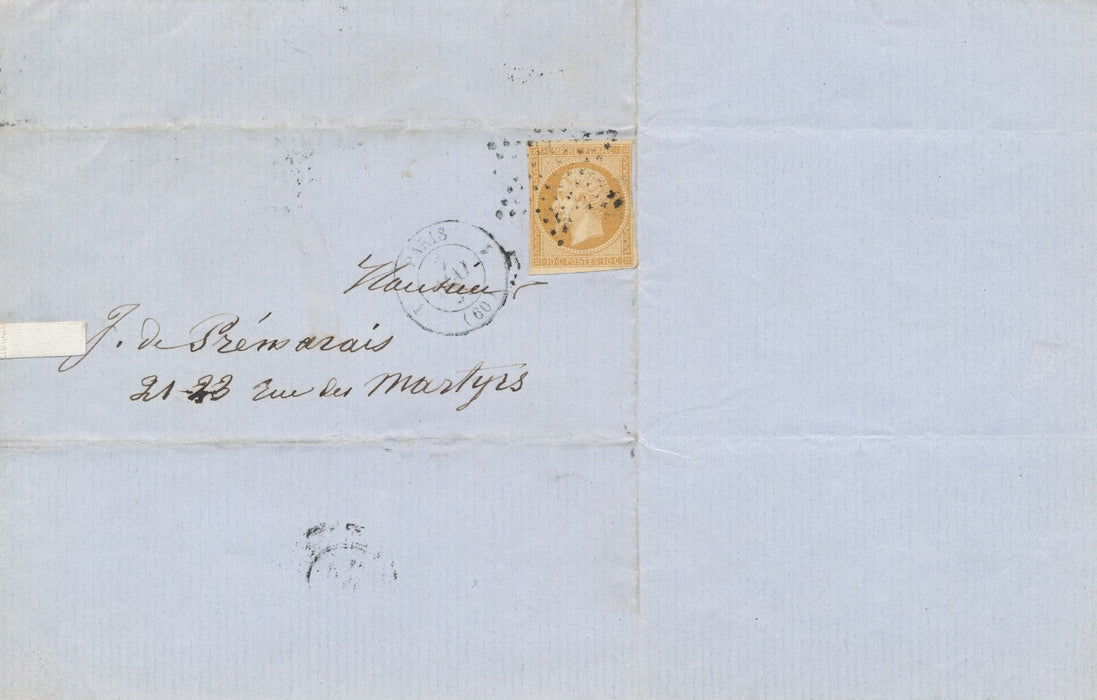 10·C·POSTES·10·C
PARIS
(60)
Monsieur
J. de Prémarais
21-23 rue des Martyrs